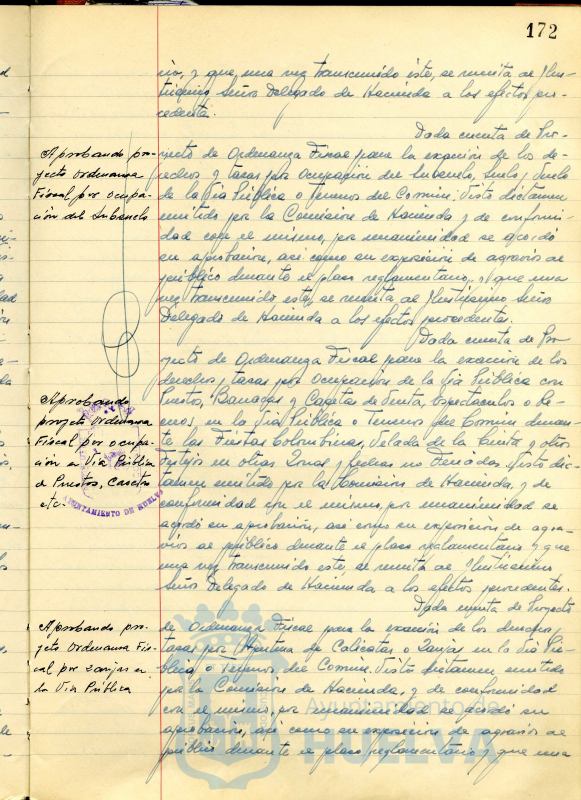 172
rio, y que una vez transcurrido éste, se remita al Ilus-
trísimo Señor Delegado de Hacienda a los efectos pro-
cedentes.
Dada cuenta de Pro-
Aprobando pro-
yecto Ordenanza
Fiscal por ocupa-
ción del Subsuelo
yecto de Ordenanza Fiscal para la exacción de los de-
rechos y tasas por Ocupación del Subsuelo, Suelo y Vuelo
de la Vía Pública o Terrenos del Común. Visto dictamen
emitido por la Comisión de Hacienda y de conformi-
dad con el mismo, por unanimidad se acordó
su aprobación, así como su exposición de agravios al
público durante el plazo reglamentario, y que una
vez transcurrido este, se remita al Ilustrísimo Señor
Delegado de Hacienda a los efectos procedentes.
Dada cuenta de Pro-
yecto de Ordenanza Fiscal para la exacción de los
derechos y tasas por Ocupación de la Vía Pública con
Aprobando
proyecto Ordenanza
Fiscal por ocupa-
ción en Vía Pública
de Puestos, Casetas
etc.
AYUNTAMIENTO DE HUELVA
Puestos, Barracas y Casetas de Venta, Espectáculos o Re-
creos, en la Vía Pública o Terrenos del Común duran-
te las Fiestas Colombinas, Velada de la Cinta y otros
festejos en otras Zonas y fechas no feriadas. Visto dic-
tamen emitido por la Comisión de Hacienda, y de
conformidad con el mismo, por unanimidad se
acordó su aprobación, así como su exposición de agra-
vios al público durante el plazo reglamentario y que
una vez transcurrido este, se remita al Ilustrísimo
Señor Delegado de Hacienda a los efectos procedentes.
Dada cuenta de Proyecto
Aprobando pro-
yecto Ordenanza Fis-
cal por zanjas en
la Vía Pública
de Ordenanza Fiscal para la exacción de los derechos y
tasas por Apertura de Calicatas o Zanjas en la Vía Pú-
blica, o Terrenos del Común. Visto dictamen emitido
por la Comisión de Hacienda, y de conformidad
con el mismo, por unanimidad se acordó su
aprobación, así como su exposición de agravios al
público durante el plazo reglamentario y que una
Ayuntamiento de
HUELVA